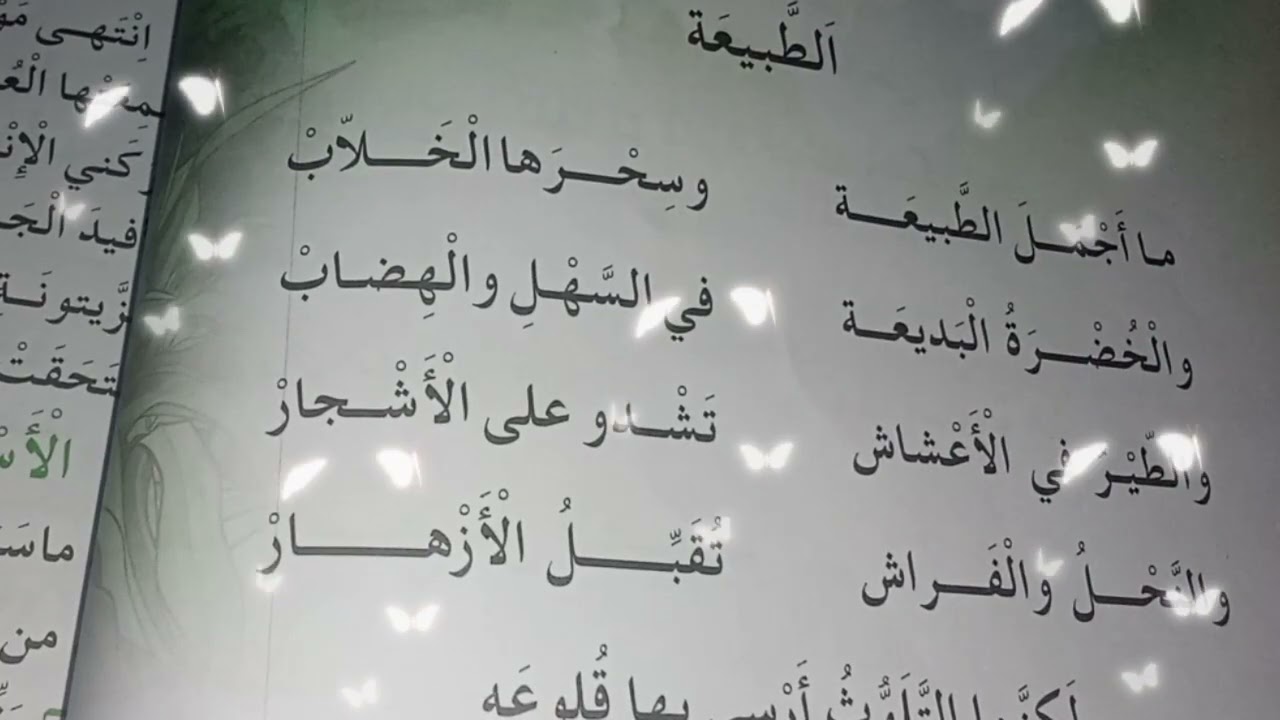 اَلطَّبيعَة
ما أَجْمَلَ الطَّبيعَة وسِحْرَها الْخَلاّبْ
والْخُضْرَةُ الْبَديعَة في السَّهْلِ والْهِضابْ
والطّيْرُ في الْأَعْشاش تَشْدو على الْأَشْجارْ
والنَّحْلُ والْفَراش تُقَبِّلُ الْأَزْهارْ
لَكِنَّما التَّلَوُّثُ أَرْسى بِها قُلوعَه
اِنْتَهى
الْإِنْ
فيدَ الْجَ
زَّيتونَة
تَحَقَتْ
الْأَسْ
ماسَ
من